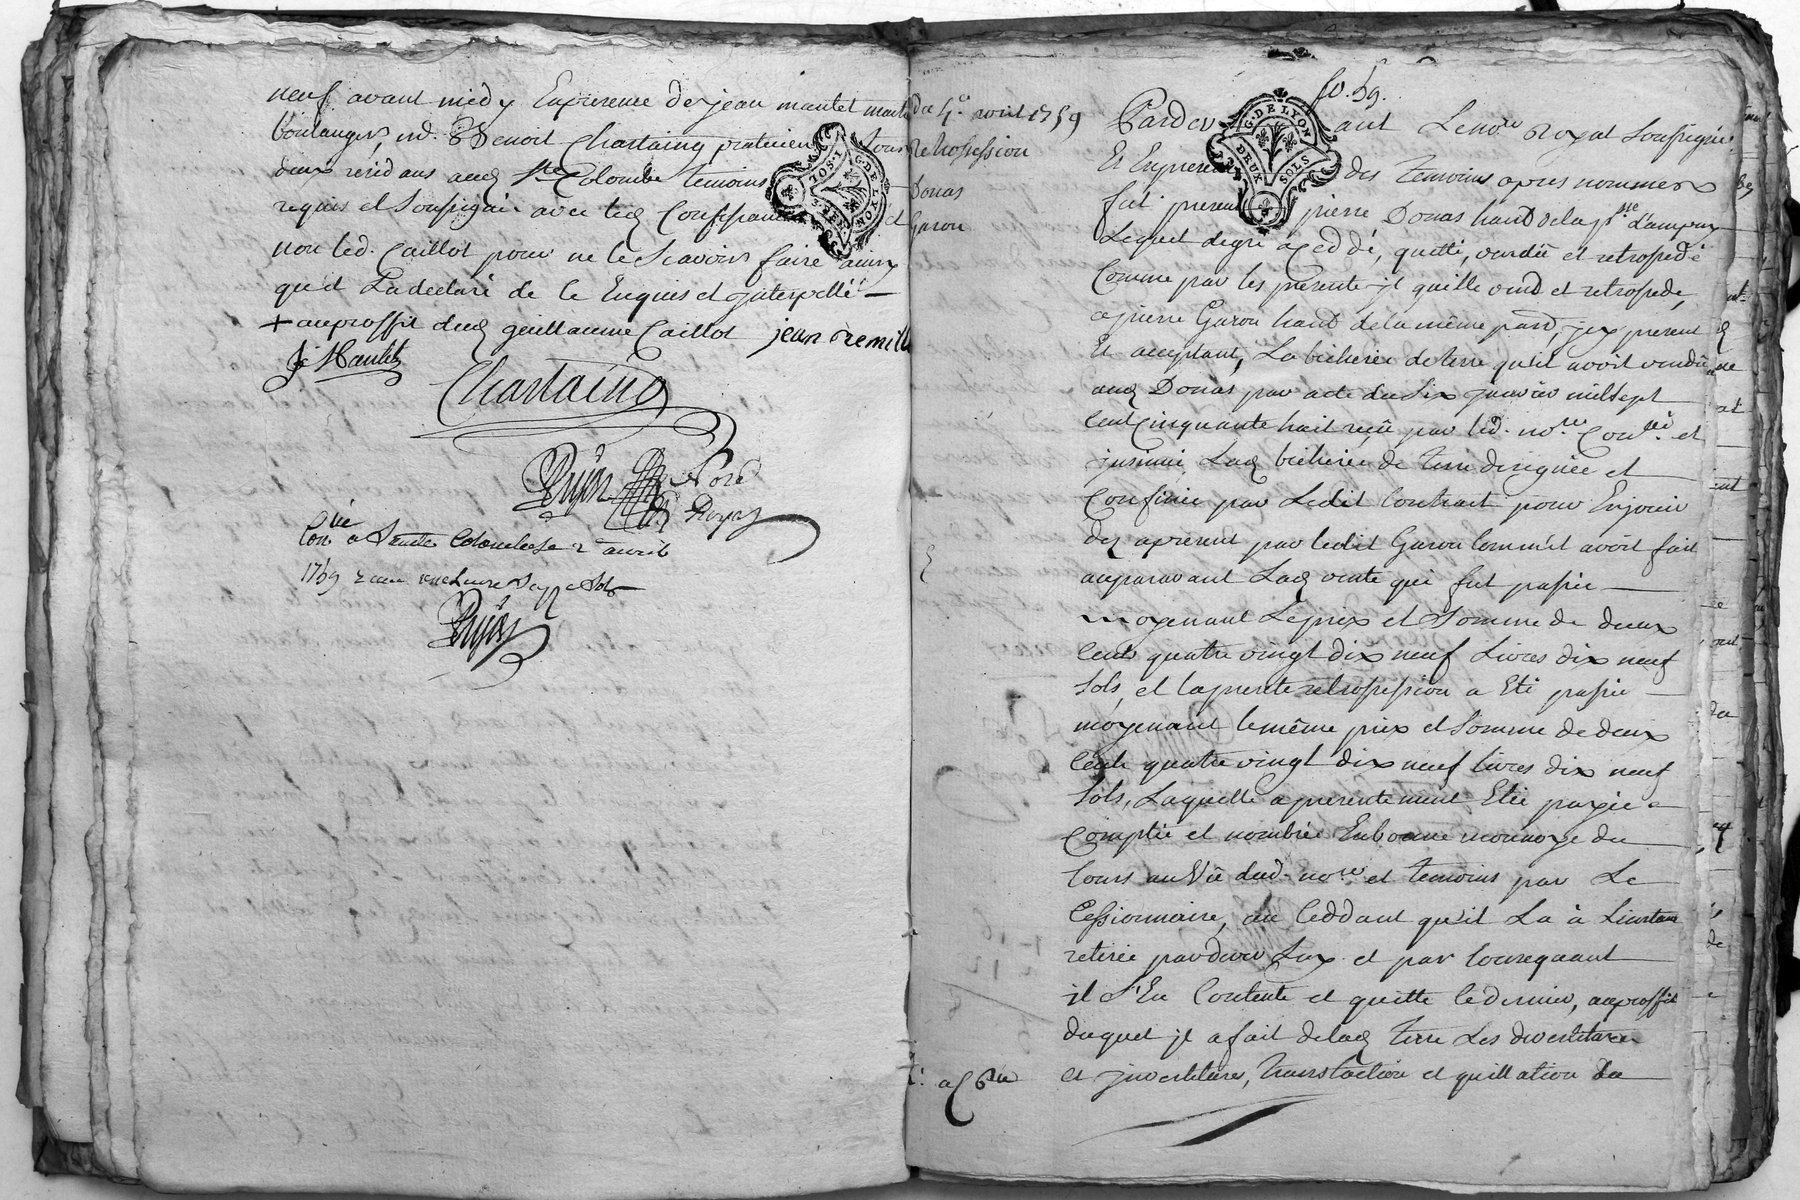 neuf avant midy En presence de jean mantet marchand
boulanger, et Sr. Benoit Chartaing praticien tous
deux residans aud. Ste Colombe temoins
requis et soussignés avec led. confessant et
non led. Caillot pour ne le scavoir faire ainsy
qu'il L'a declaré de ce Enquis et Interpellé —
+ au proffit dud. guillaume Caillot jean Remill
J. Mantet
Chartaing
Dujas Nore
Royal
Conlé a Sainte Colombe le 2 avril
1759
Dujas
G. DE LYON
SOL
G. DE LYON
DEUX SOLS
fo. 59.
du 4e. avril 1759
Retrosession
Donas
Garon
Pardevant Le nore royal soussigné
Et En presence des temoins apres nommés
fut present pierre Donas habt de la psse d'ampuy
Lequel de gré a ceddé, quitté, vendu et retrosedé
Comme par les presente il quitte vend et retrosede,
a pierre Garon habt de la même parr, icy present
Et acceptant, La bicherée de terre qu'il avoit vendu
aud. Donas par acte du six janvier mil sept
cent cinquante huit reçu par led. nore Conlé. et
insinué Lad. bicherée de terre designée et
Confinée par Ledit Contract pour En jouir
dez a present par ledit Garon comm'il avoit fait
auparavant Lad. vente qui fut passée —
moyenant Le prix et Somme de deux
Cents quatre vingt dix neuf Livres dix neuf
sols, et la presente retrosession a Eté passée —
moyenant le même prix et Somme de deux
Cents quatre vingt dix neuf livres dix neuf
sols, Laquelle a presentement Eté payée
Comptée et nombrée En bonne monnoye du
Cours au Vû dud. nore et temoins par Le
Cessionnaire, au Ceddant qu'il La à L'instant
retirée pardevers Luy et par consequant
il s'En Contente et quitte ce dernier, au proffit
duquel il a fait de lad. terre Les devestitures
et investitures, translation et quittation de